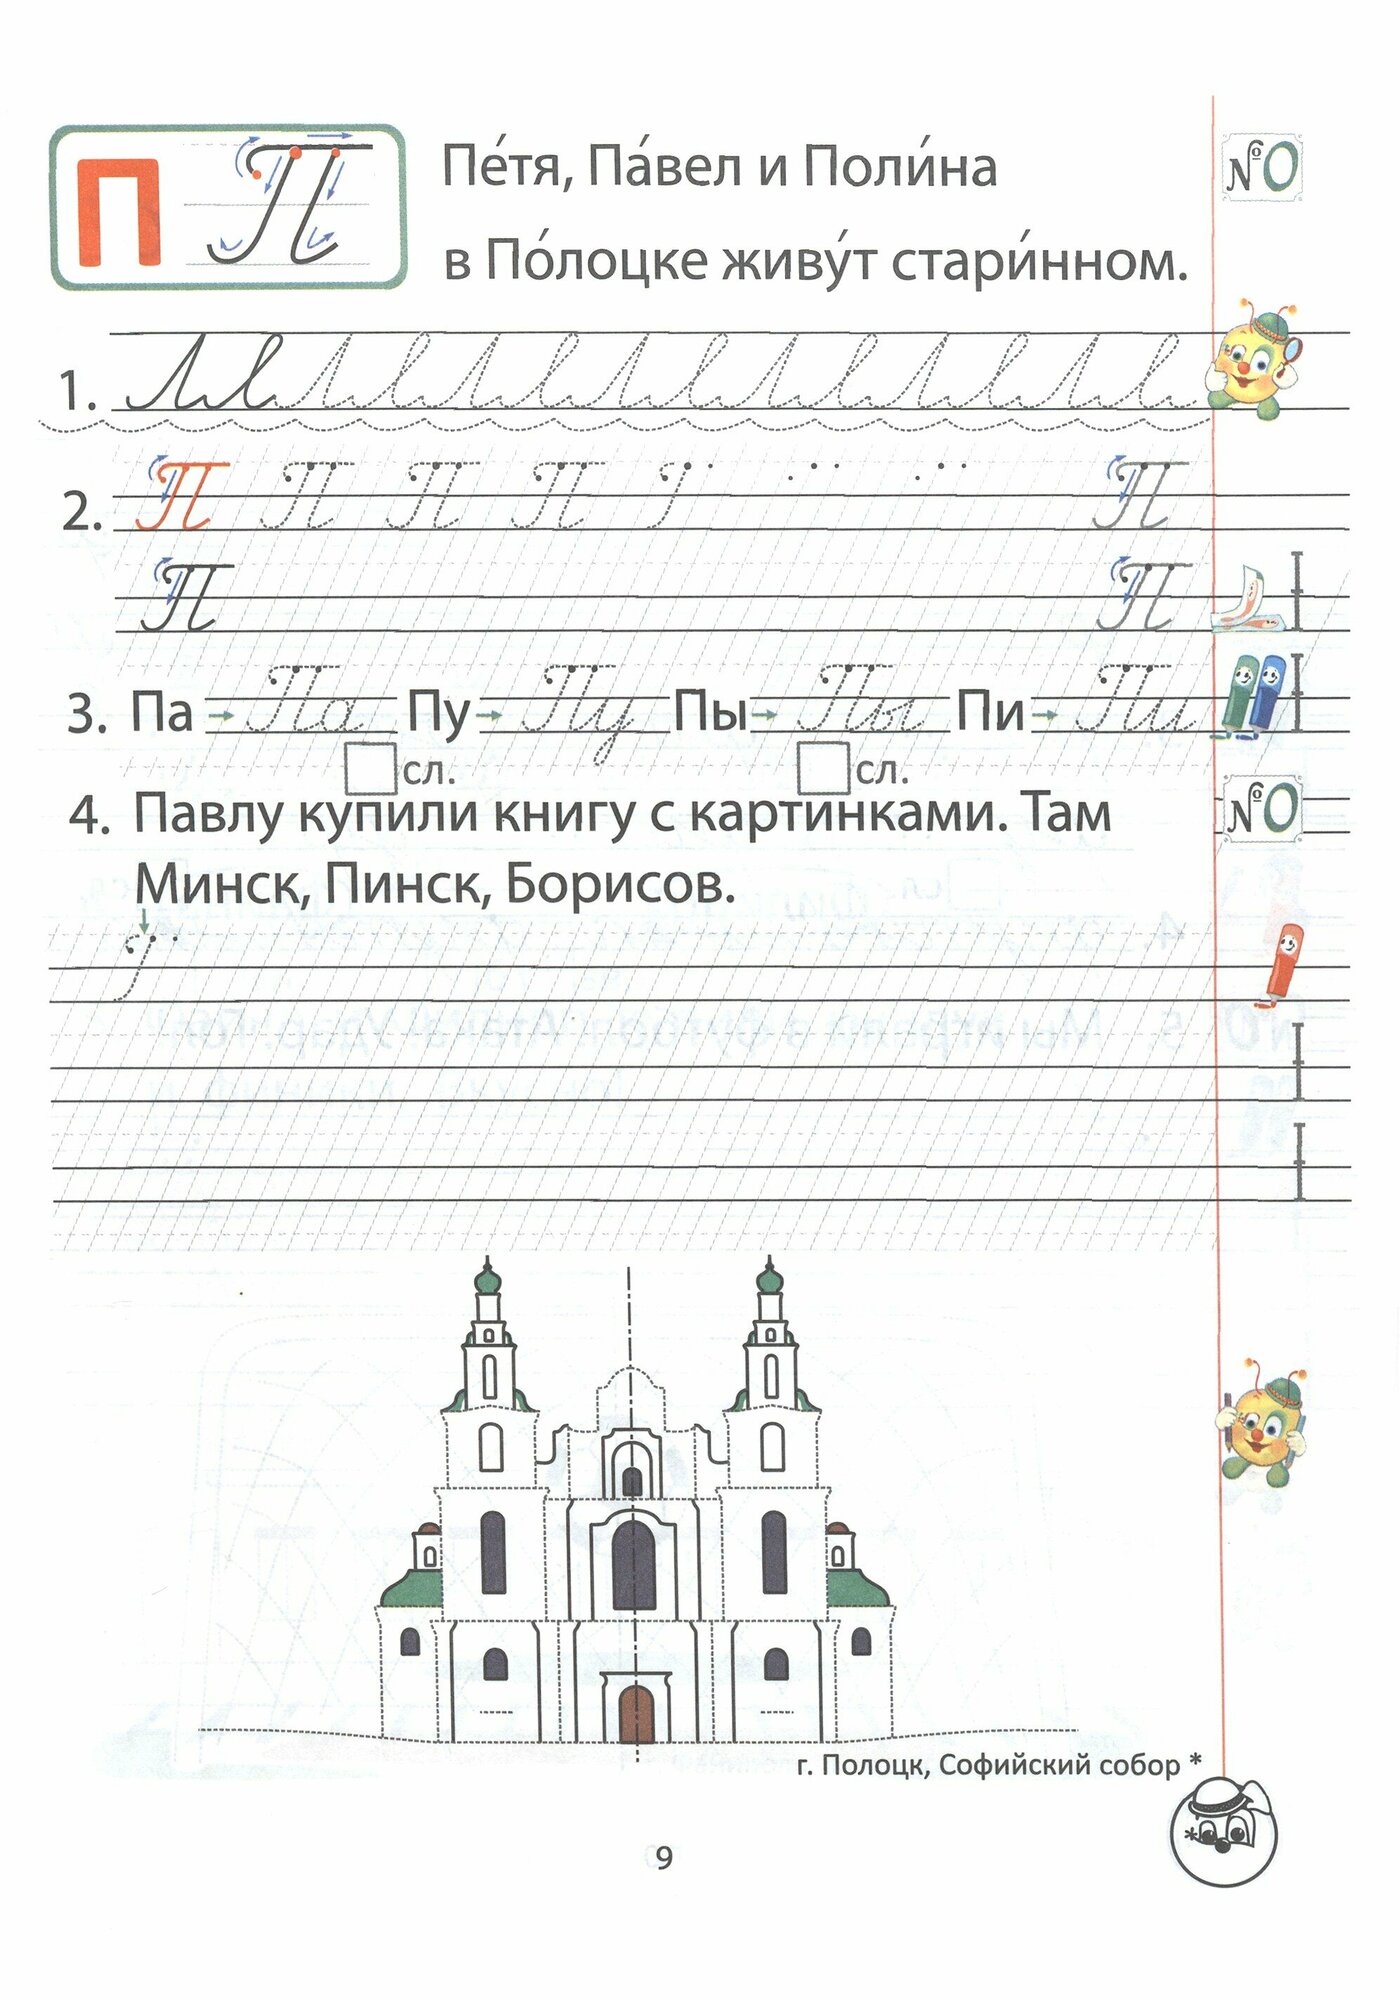 П П
Пе́тя, Па́вел и Поли́на
в По́лоцке живу́т стари́нном.
№0
1.
2. П П П П П
П П
3. Па Па Пу Пу Пы Пы Пи Пи
сл. сл.
4. Павлу купили книгу с картинками. Там
№0
Минск, Пинск, Борисов.
г. Полоцк, Софийский собор *
*
9